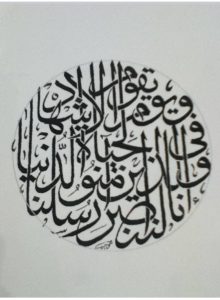 إنا لننصر رسلنا
والذين آمنوا
في الحياة الدنيا
ويوم يقوم الأشهاد